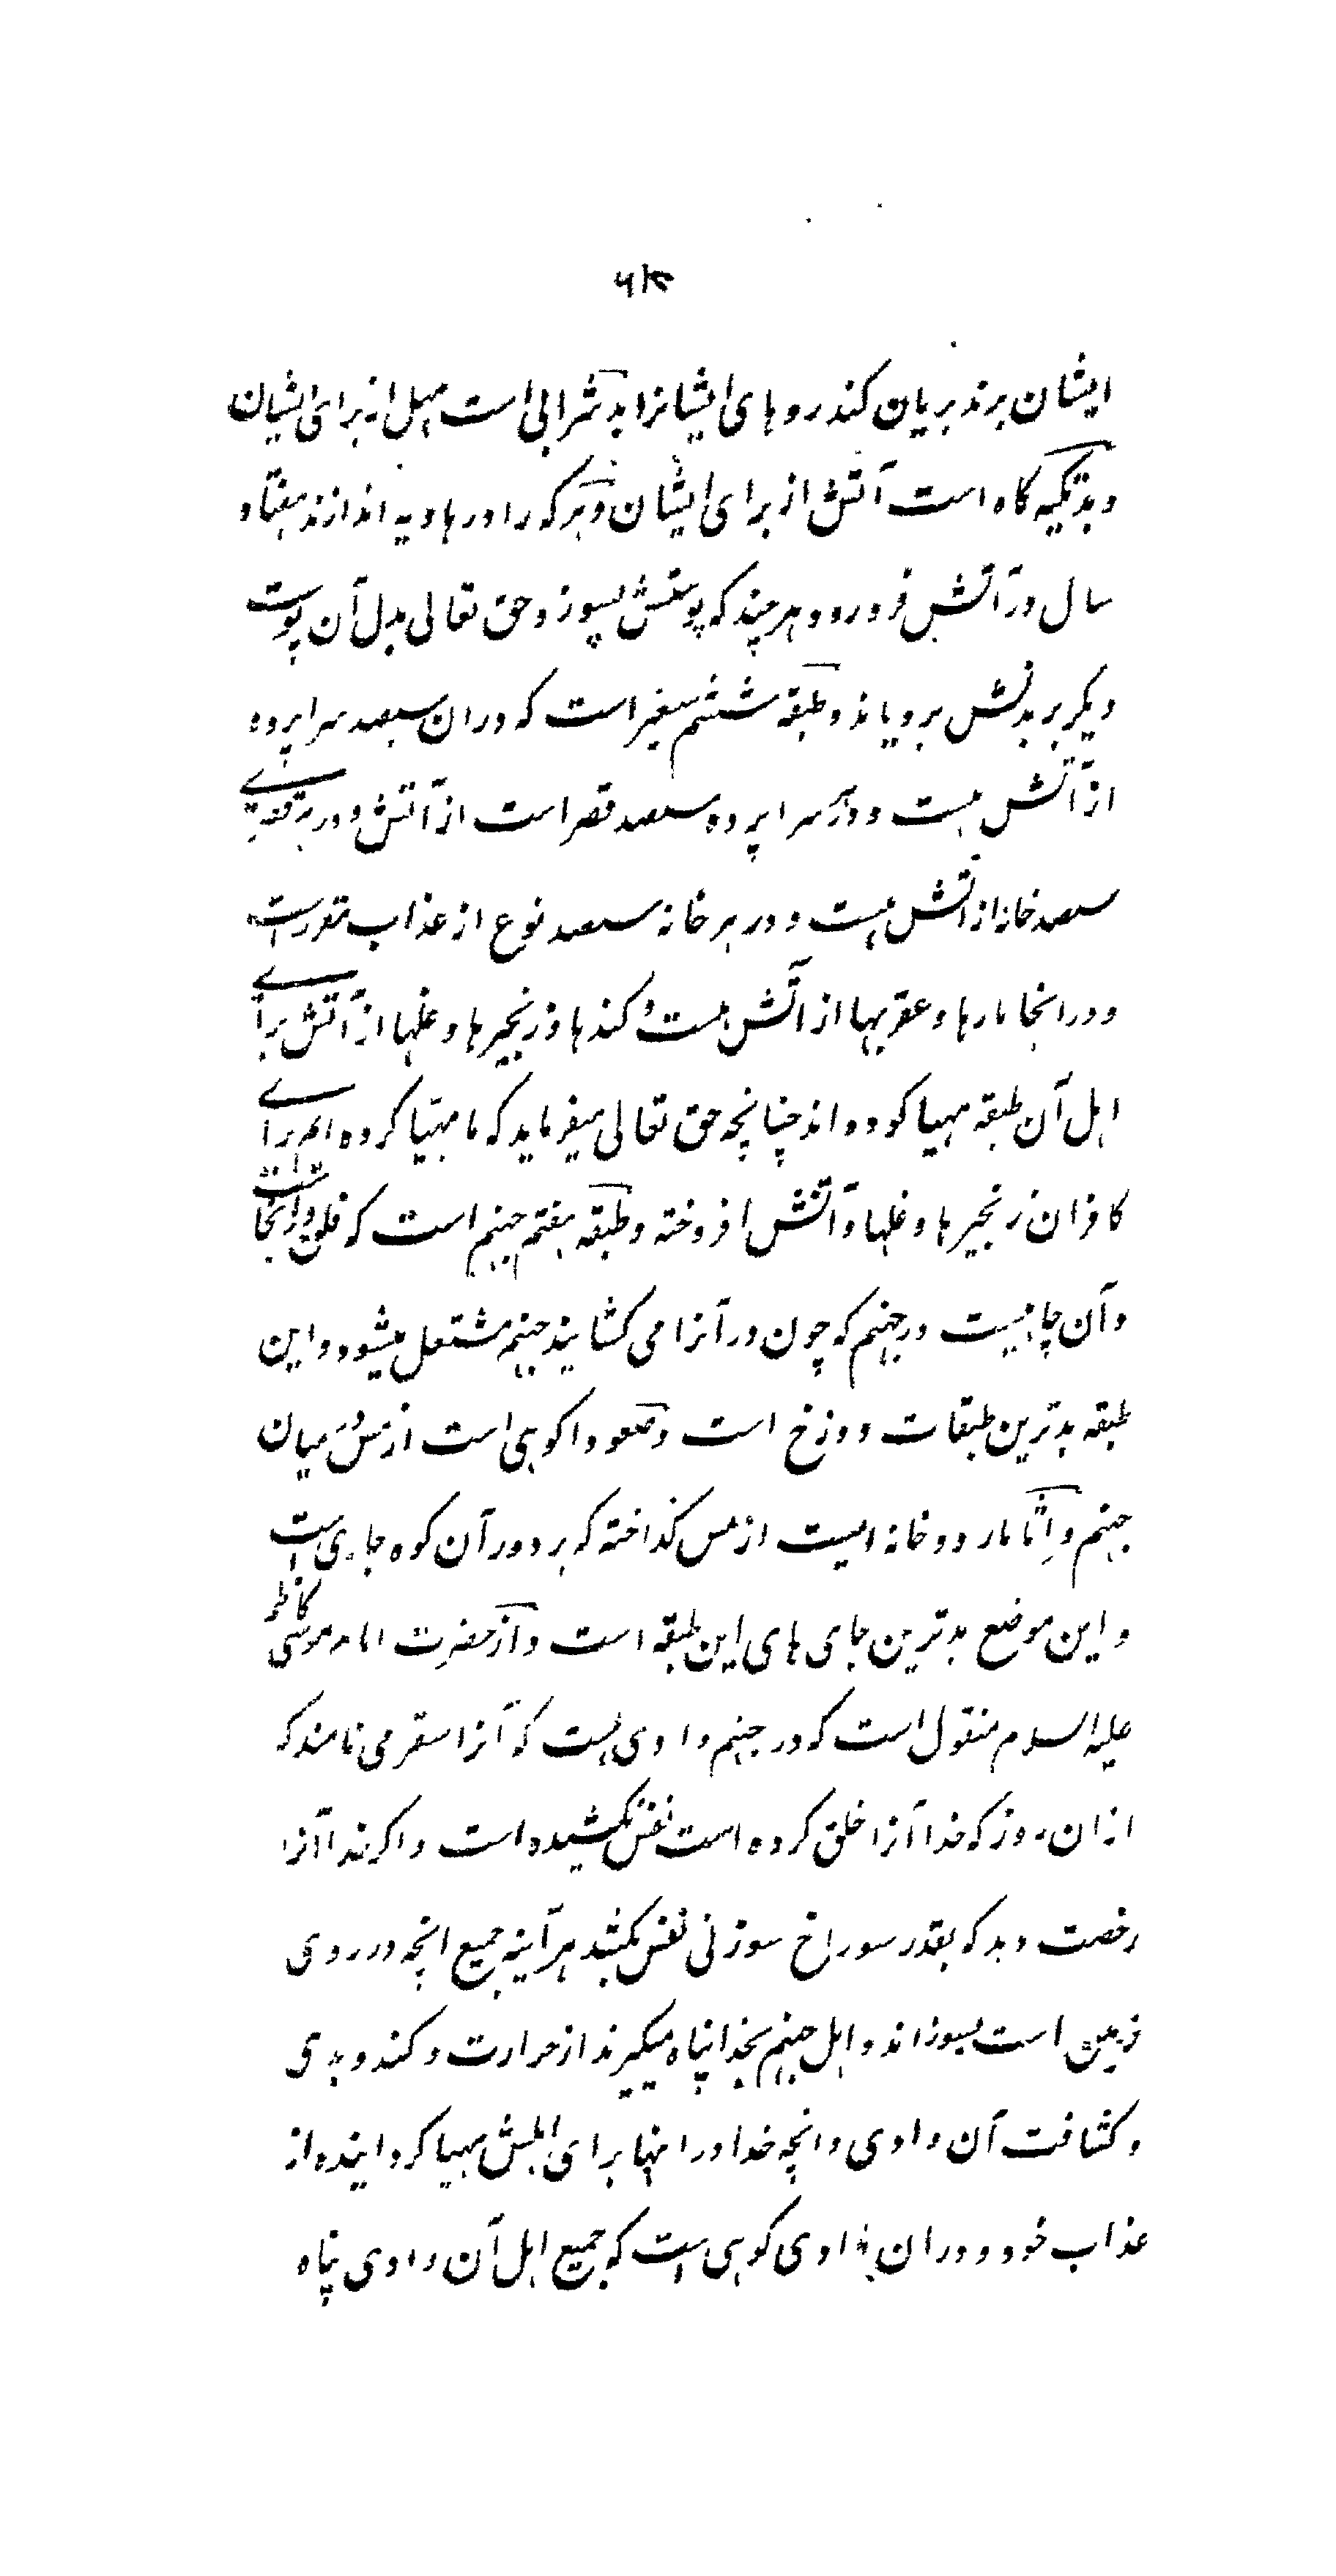 ایشان برند بریان کند روهای ایشانرا بد شرابی است مهل از برای ایشان
و بد تکیه کاه است آتش از برای ایشان و هر که را در هاویه اندازند هفتاد
سال در آتش فرو رود و هر چند که پوستش بسوزد حق تعالی بدل آن پوست
دیکر بر بدنش برویاند و طبقه ششم سعیر است که دران سیصد سراپرده
از آتش هست و در هر سراپرده سیصد قصر است از آتش و در هر قصری
سیصد خانه از آتش هست و در هر خانه سیصد نوع از عذاب مقرر است
و در انجا مارها و عقربها از آتش هست و کندها و زنجیرها و غلها از آتش برای
اهل آن طبقه مهیا کرده اند چنانچه حق تعالی میفرماید که ما مهیا کرده ایم برای
کافران زنجیرها و غلها و آتش افروخته و طبقه هفتم جهنم است که فلق در آنجاست
و آن چاهیست در جهنم که چون در آنرا می کشایند جهنم مشتعل میشود و این
طبقه بدترین طبقات دوزخ است و صعودا کوهی است از مس در میان
جهنم و اثاما رودخانه ایست از مس کداخته که بر دور آن کوه جاری است
و این موضع بدترین جای های این طبقه است و از حضرت امام موسی کاظم
علیه السلام منقول است که در جهنم وادی هست که آنرا سقر می نامند که
ازان روز که خدا آنرا خلق کرده است نفس نکشیده است و اکر خدا آنرا
رخصت دهد که بقدر سوراخ سوزنی نفس بکشد هر آینه جمیع انچه در روی
زمین است بسوزاند و اهل جهنم بخدا پناه میکیرند از حرارت و کند و بدی
و کثافت آن وادی و انچه خدا در انها برای اهلش مهیا کردانیده از
عذاب خود و دران وادی کوهی است که جمیع اهل آن وادی پناه